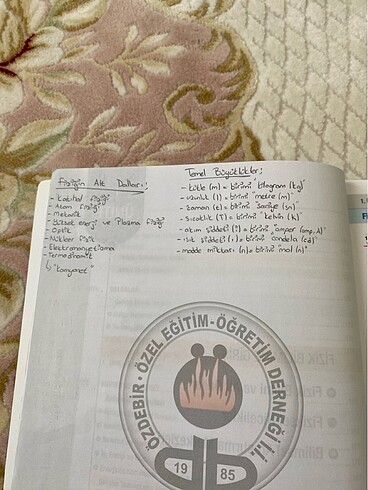 Fiziğin Alt Dalları:
- Katıhal fiziği
- Atom fiziği
- Mekanik
- Yüksek enerji ve Plazma fiziği
- Optik
- Nükleer fizik
- Elektromanyetizma
- Termodinamik
"kamyonet"
Temel Büyüklükler:
- kütle (m) = birimi "kilogram (kg)
- uzunluk (l) = birimi "metre (m)
- zaman (t) = birimi "saniye (sn)
- sıcaklık (T) = birimi "kelvin (K)
- akım şiddeti (i) = birimi "amper (amp, A)
- ışık şiddeti (ı) = birimi candela (cd)
- madde miktarı (n) = birimi mol (n)
ÖZDEBİR · ÖZEL EĞİTİM-ÖĞRETİM DERNEĞİ İ.İ.
19 85